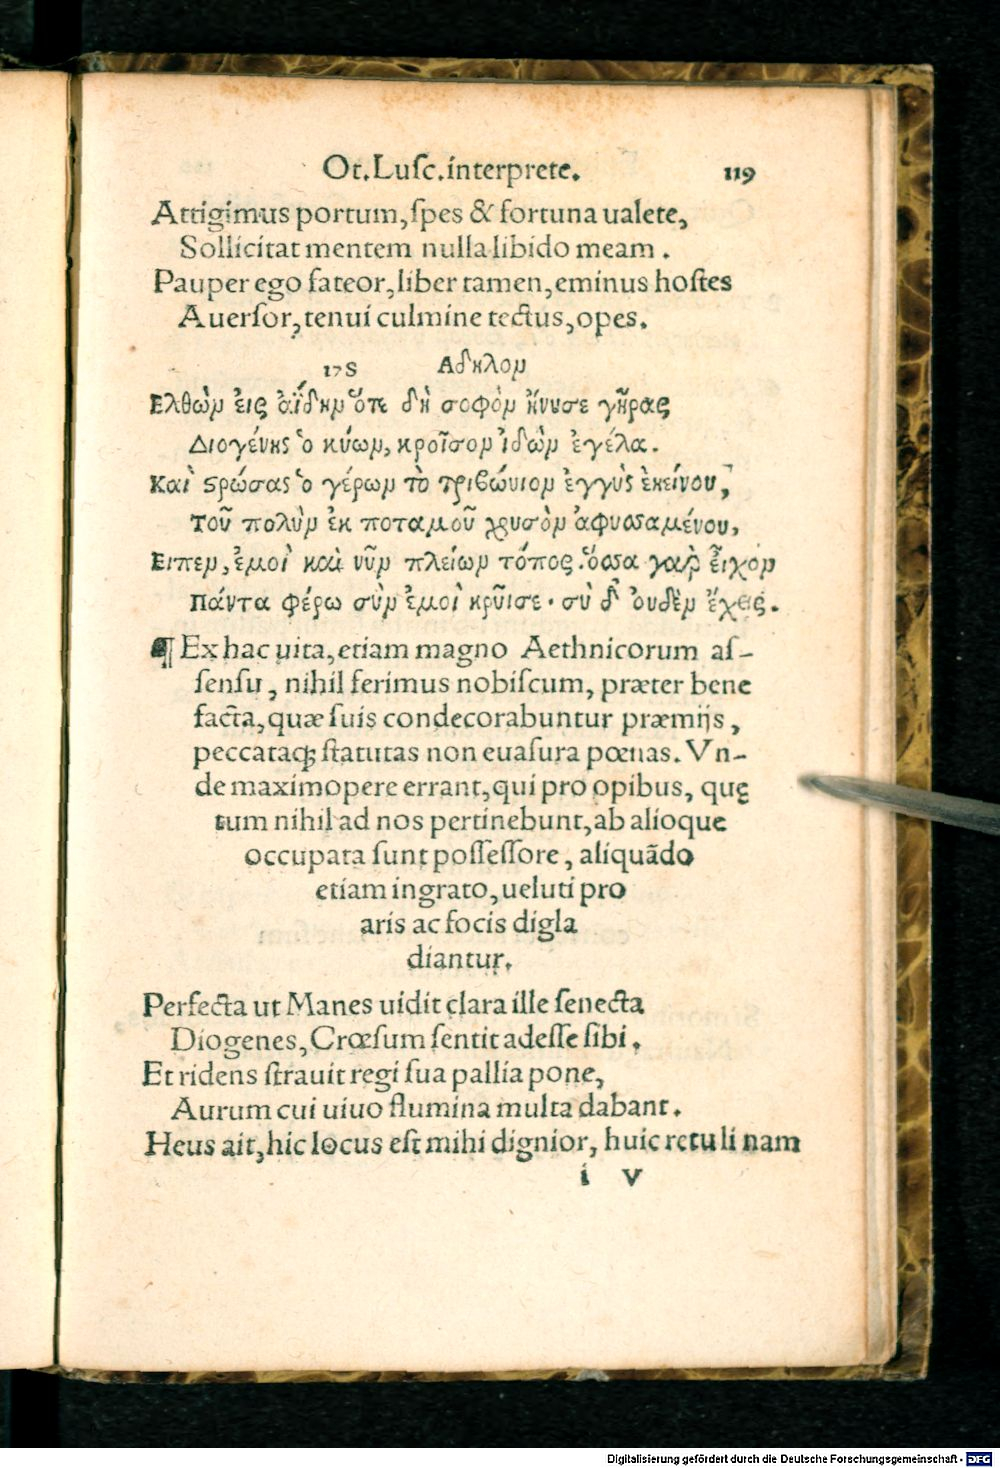 Ot. Lusc. interprete. 119
Attigimus portum, spes & fortuna ualete,
Sollicitat mentem nulla libido meam.
Pauper ego fateor, liber tamen, eminus hostes
Auersor, tenui culmine tectus, opes.
175 Αδηλον
Ελθὼν ἐις ἀΐδην ὅτε δὴ σοφὸν ἤνυσε γῆρας
Διογένης ὁ κύων, κροῖσον ἰδὼν ἐγέλα.
Καὶ ϛρώσας ὁ γέρων τὸ τριβώνιον ἐγγὺς ἐκείνου,
Τοῦ πολὺν ἐκ ποταμοῦ χρυσὸν ἀφυσσαμένου,
Ειπεν, ἐμοὶ καὶ νῦν πλείων τόπος. ὅσσα γαρ εἶχον
Πάντα φέρω σὺν ἐμοὶ κροῖσε· σὺ δ' ουδὲν ἔχεις.
¶ Ex hac uita, etiam magno Aethnicorum as-
sensu, nihil ferimus nobiscum, præter bene
facta, quæ suis condecorabuntur præmijs,
peccataq; statutas non euasura pœnas. Vn-
de maximopere errant, qui pro opibus, quę
tum nihil ad nos pertinebunt, ab alioque
occupata sunt possessore, aliquãdo
etiam ingrato, ueluti pro
aris ac focis digla
diantur.
Perfecta ut Manes uidit clara ille senecta
Diogenes, Crœsum sentit adesse sibi.
Et ridens strauit regi sua pallia pone,
Aurum cui uiuo flumina multa dabant.
Heus ait, hic locus est mihi dignior, huic retuli nam
i V
Digitalisierung gefördert durch die Deutsche Forschungsgemeinschaft - DFG